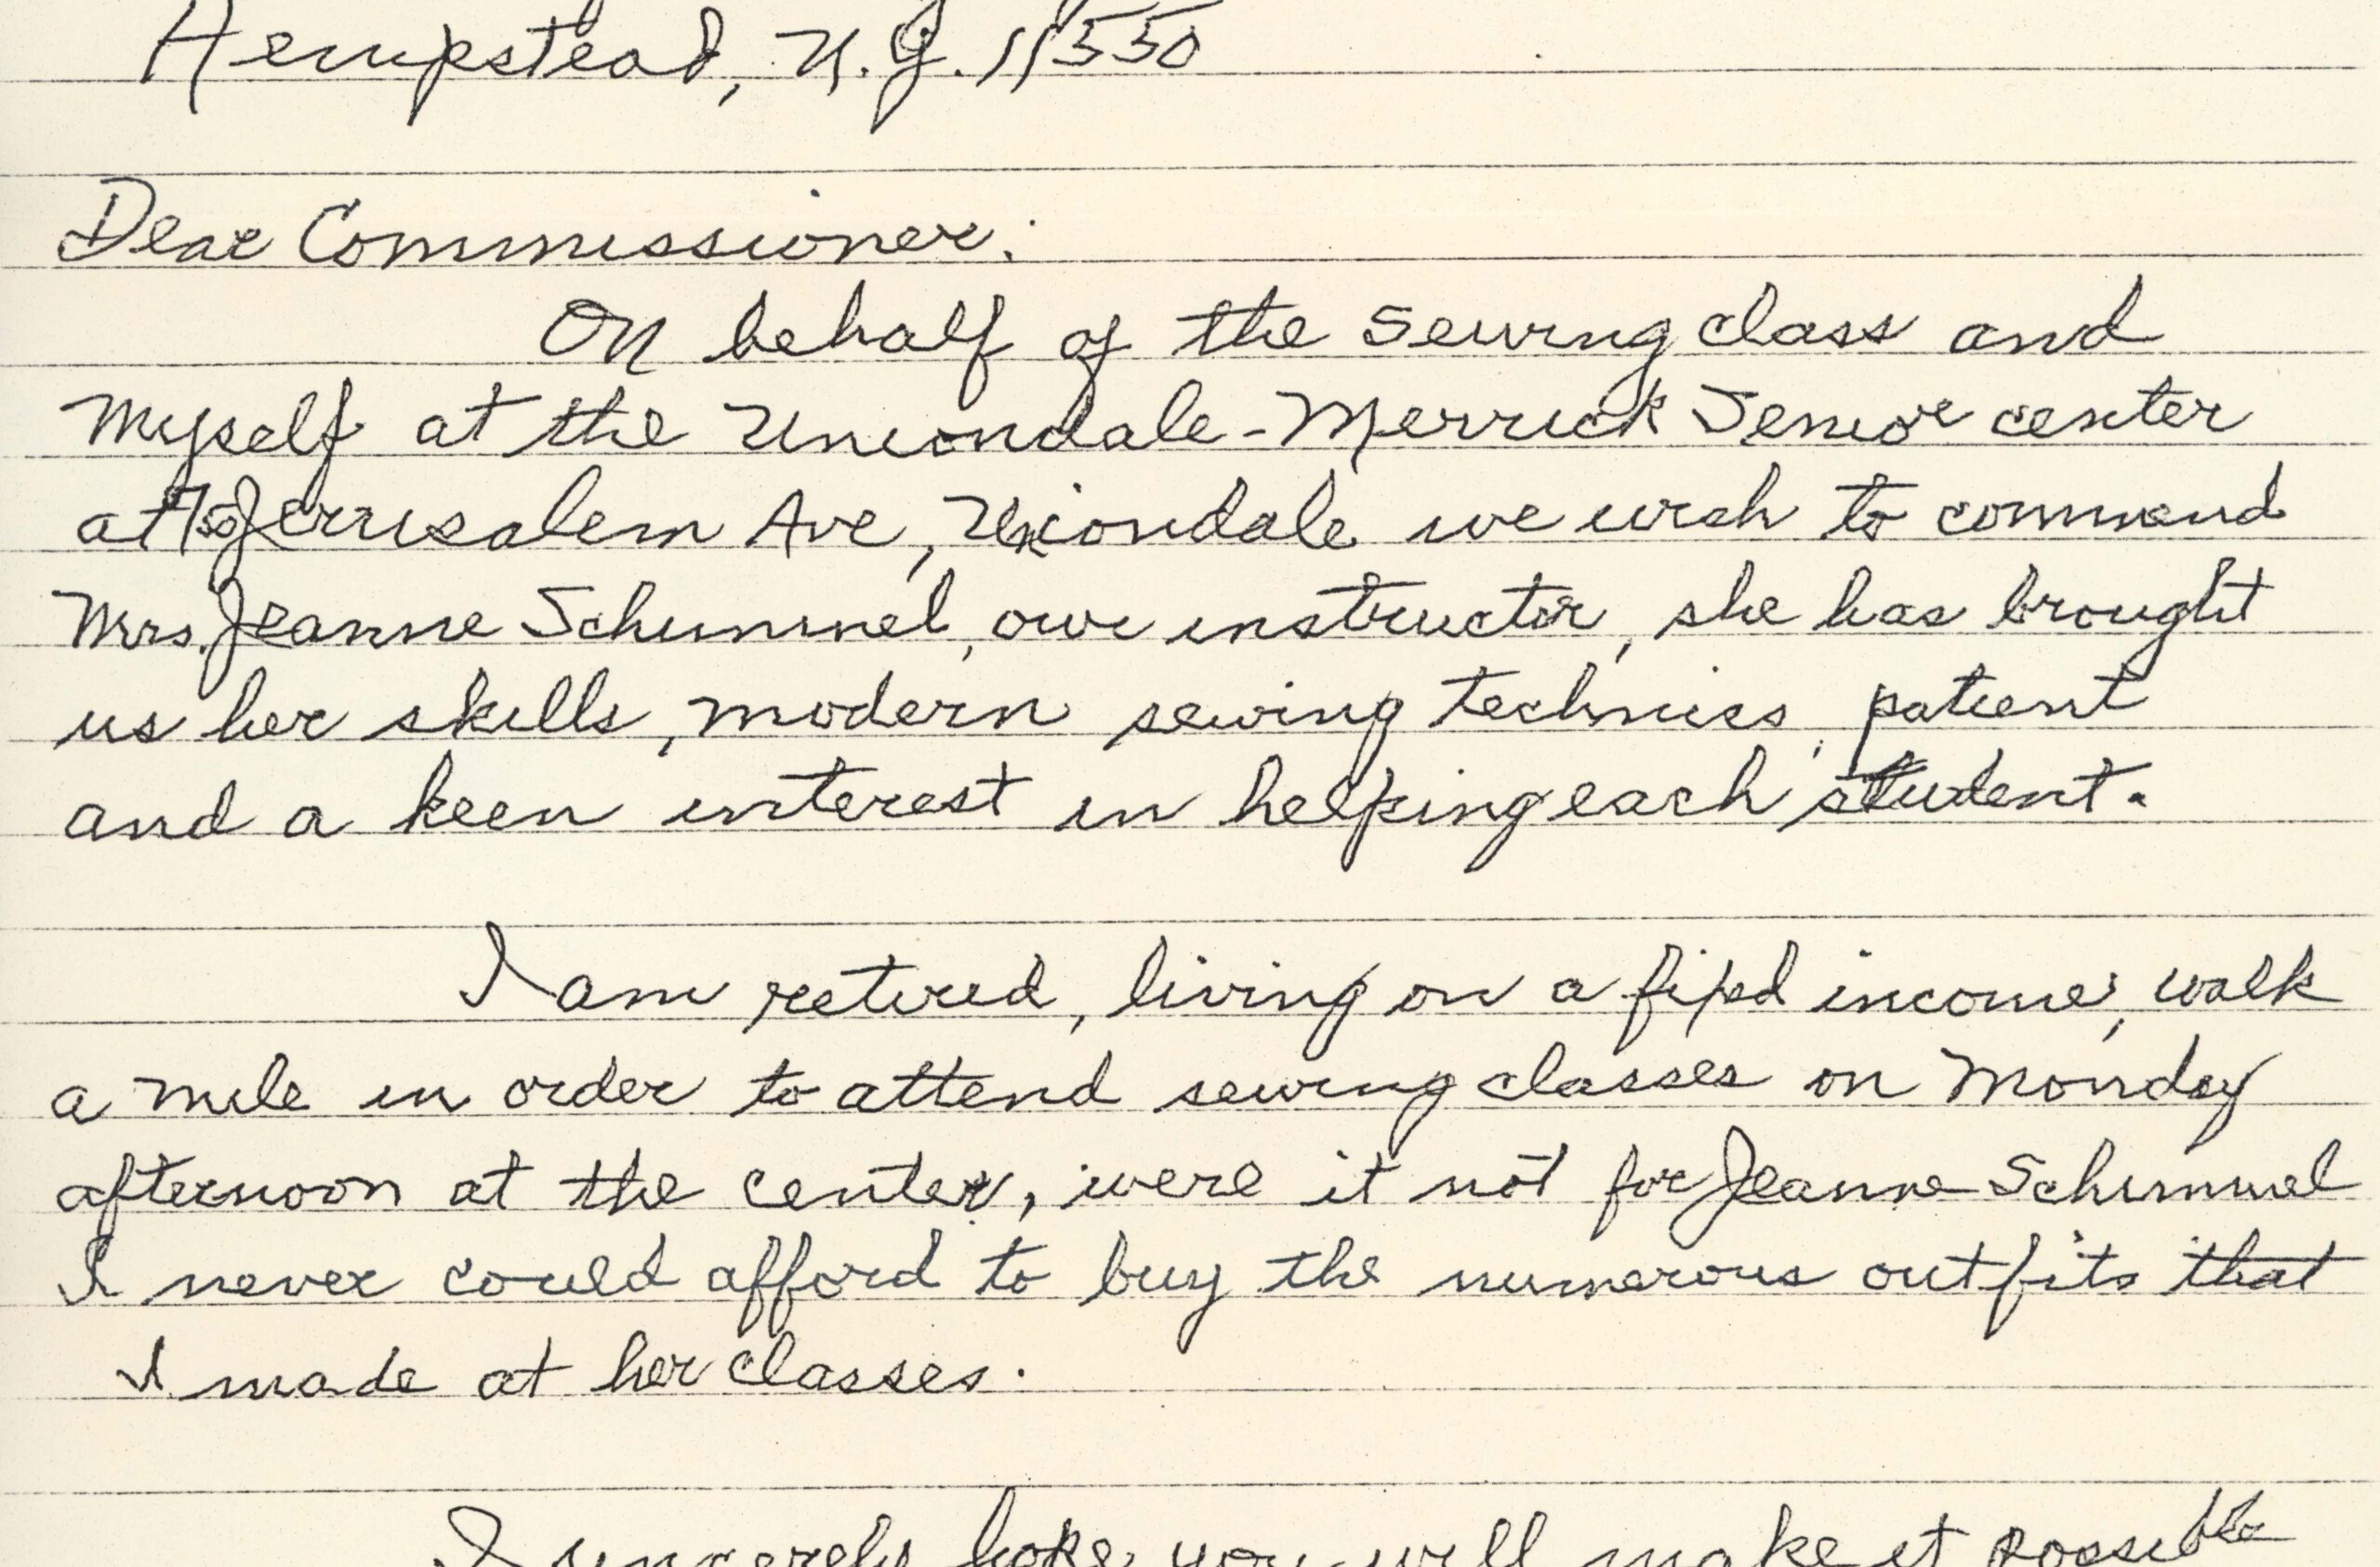 Hempstead, N.Y. 11550
Dear Commissioner:
On behalf of the sewing class and
myself at the Uniondale-Merrick Senior center
at 750 Jerusalem Ave, Uniondale we wish to commend
Mrs. Jeanne Schimmel, our instructor, she has brought
us her skills, modern sewing technics, patient
and a keen interest in helping each student.
I am retired, living on a fixed income, walk
a mile in order to attend sewing classes on Monday
afternoon at the center, were it not for Jeanne Schimmel
I never could afford to buy the numerous outfits that
I made at her classes.
I sincerely hope you will make it possible